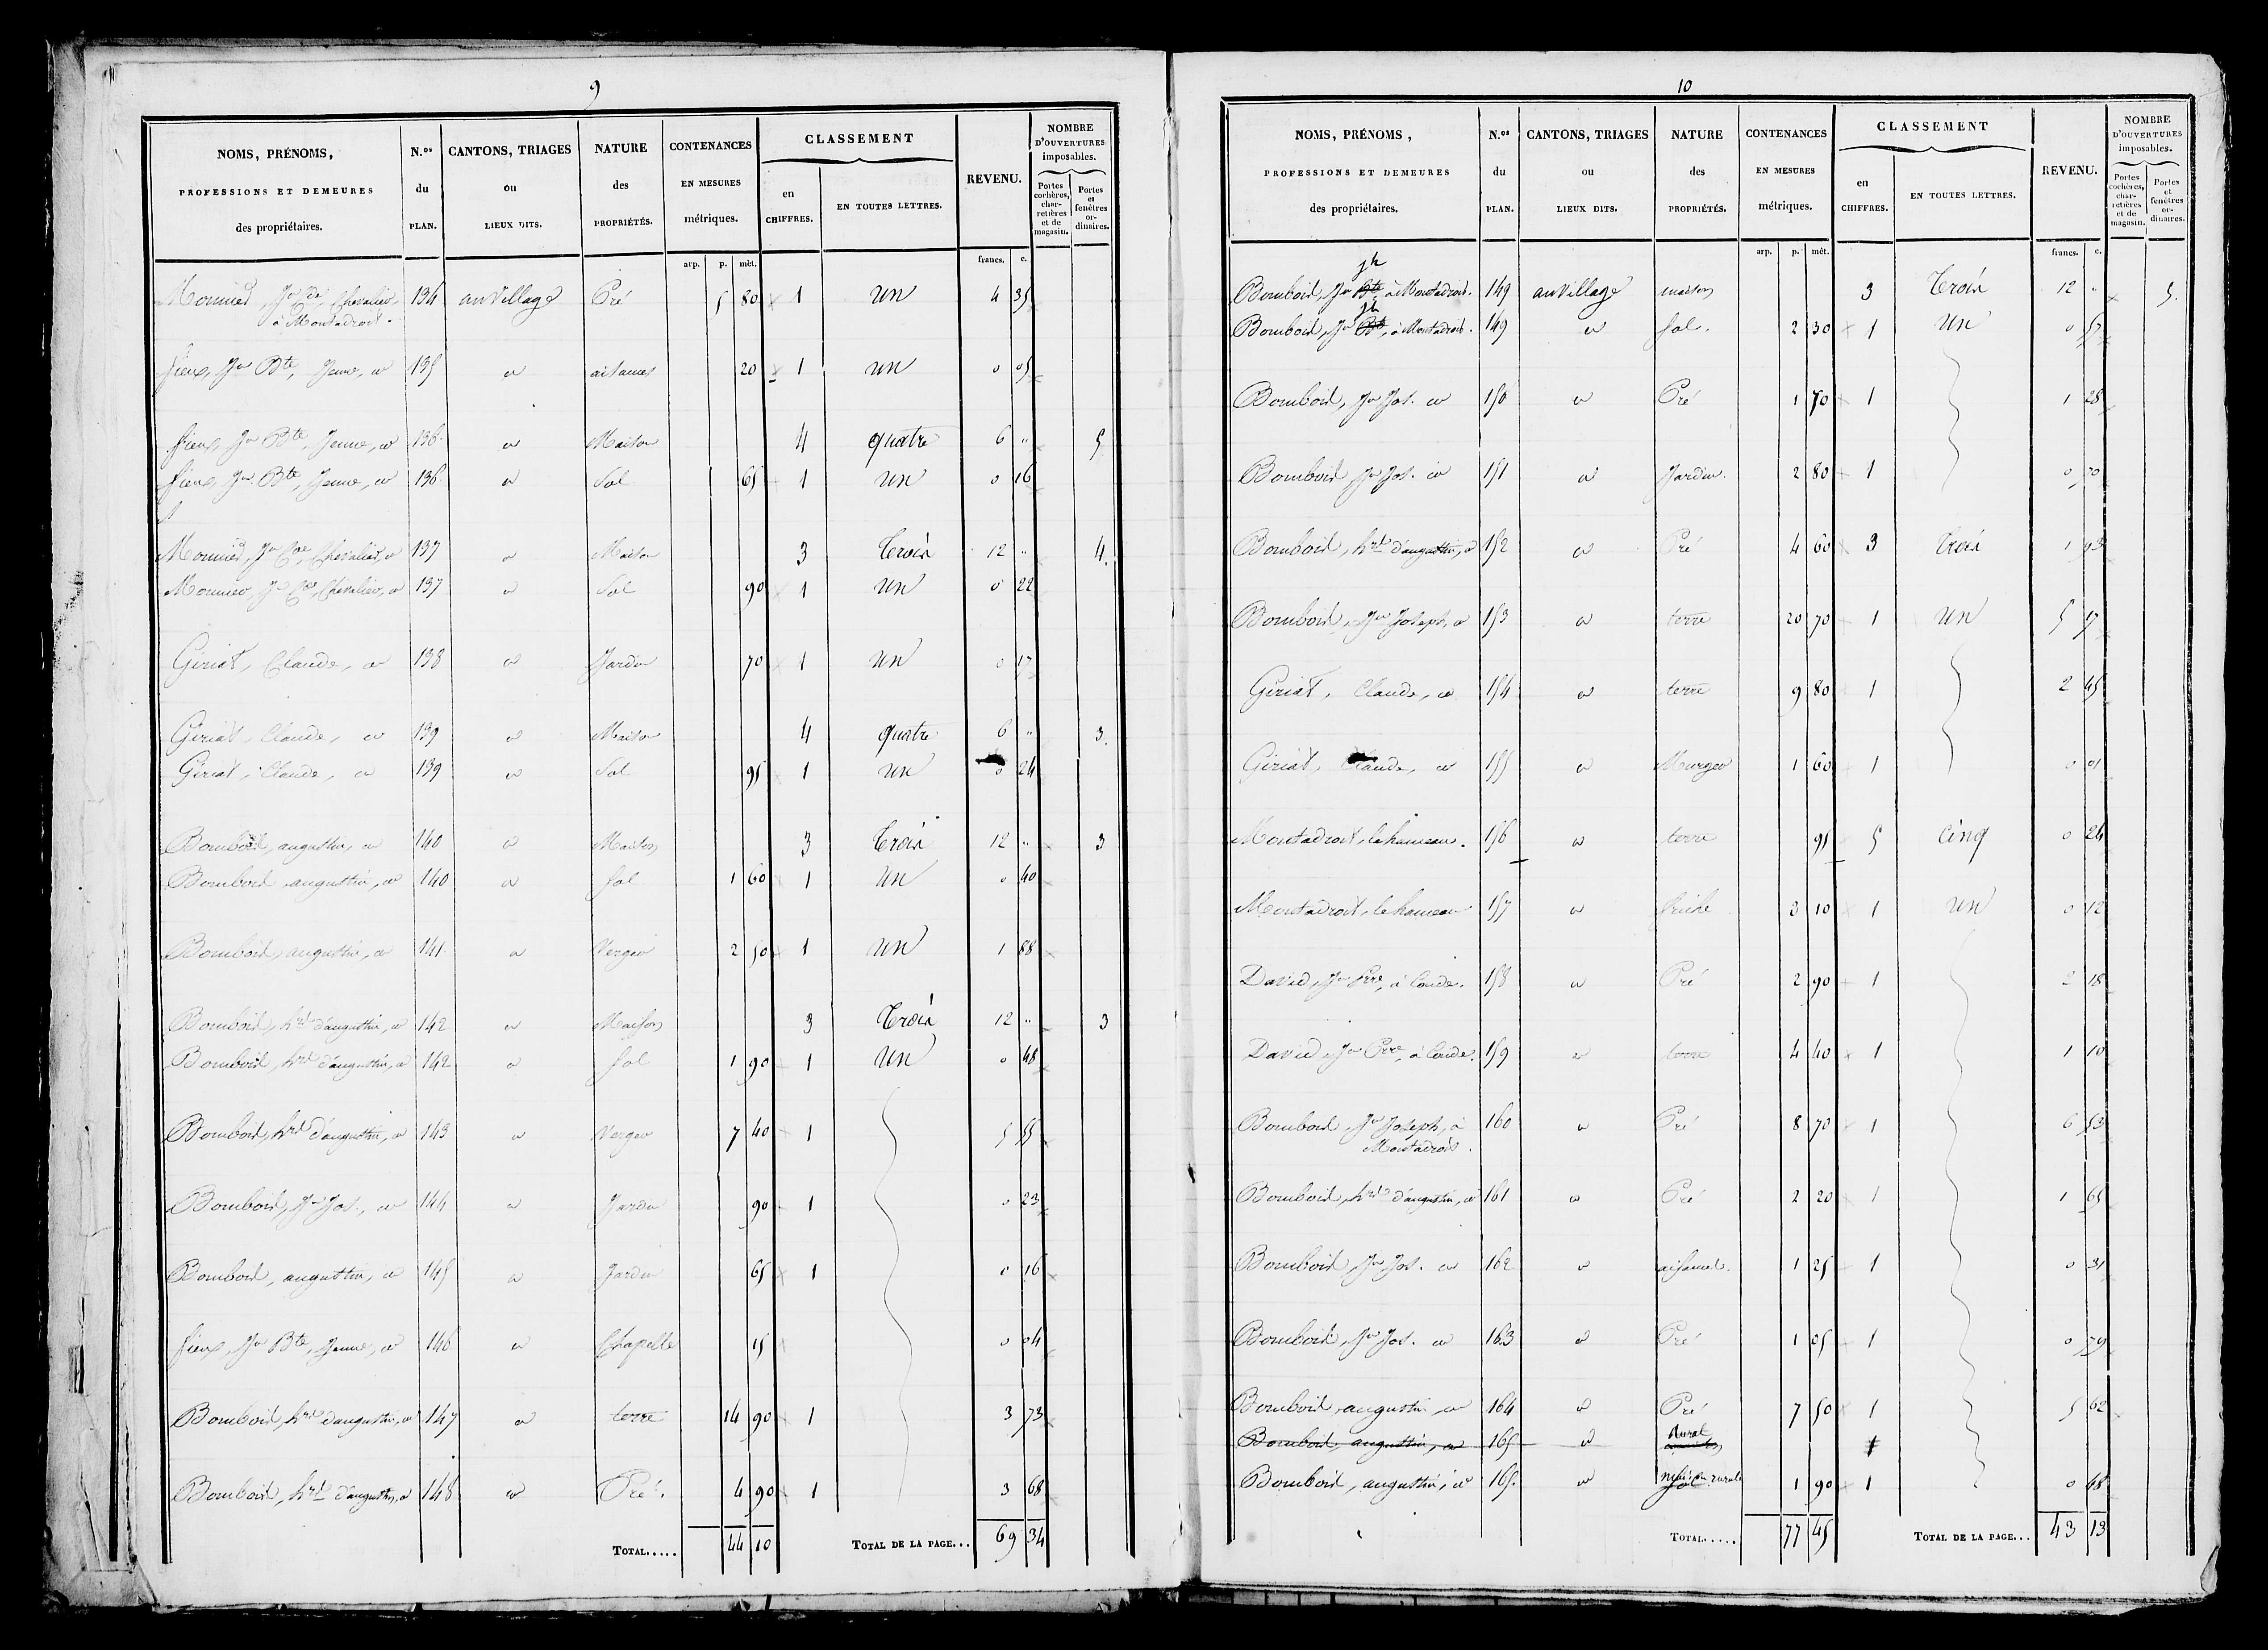 9
NOMS, PRÉNOMS, PROFESSIONS ET DEMEURES des propriétaires. N.os du PLAN. CANTONS, TRIAGES ou LIEUX DITS. NATURE des PROPRIÉTÉS. CONTENANCES EN MESURES métriques. CLASSEMENT en CHIFFRES. EN TOUTES LETTRES. REVENU. NOMBRE D'OUVERTURES imposables. Portes cochères, charretières et de magasin. Portes et fenêtres ordinaires.
arp. p. mèt. francs. c.
134 au Village Pré 5 80 1 un 4 35
à Montadroit.
Jn Bte, Jeune, id 135 id aisances 20 1 un 0 05
Jn Bte, Jeune, id 136 id Maison 4 quatre 6 " 5
Jn Bte, Jeune, id 136 id Sol 65 1 un 0 16
Monnier, Jn Chevalier, id 137 id Maison 3 trois 12 " 4
Monnier, Jn Chevalier, id 137 id Sol 90 1 un 0 22
Giriat, Claude, id 138 id Jardin 70 1 un 0 17
Giriat, Claude, id 139 id Maison 4 quatre 6 " 3
Giriat, Claude, id 139 id Sol 95 1 un 0 24
Bomboid, augustin, id 140 id Maison 3 trois 12 " 3
Bomboid, augustin, id 140 id Sol 1 60 1 un 0 40
Bomboid, augustin, id 141 id Verger 2 50 1 un 1 88
Bomboid, hrs d'augustin, id 142 id Maison 3 trois 12 " 3
Bomboid, hrs d'augustin, id 142 id Sol 1 90 1 un 0 48
Bomboid, hrs d'augustin, id 143 id Verger 7 40 1 5 55
Bomboid, Jn Jos., id 144 id Jardin 90 1 0 23
Bomboid, augustin, id 145 id Jardin 65 1 0 16
Jn Bte, Jeune, id 146 id Chapelle 15 0 04
Bomboid, hrs d'augustin, id 147 id terre 14 90 1 3 73
Bomboid, hrs d'augustin, id 148 id Pré 4 90 1 3 68
TOTAL..... 44 10 TOTAL DE LA PAGE... 69 34
10
NOMS, PRÉNOMS, PROFESSIONS ET DEMEURES des propriétaires. N.os du PLAN. CANTONS, TRIAGES ou LIEUX DITS. NATURE des PROPRIÉTÉS. CONTENANCES EN MESURES métriques. CLASSEMENT en CHIFFRES. EN TOUTES LETTRES. REVENU. NOMBRE D'OUVERTURES imposables. Portes cochères, charretières et de magasin. Portes et fenêtres ordinaires.
arp. p. mèt. francs. c.
jh
Bomboid, Jn Bte, à Montadroit. 149 au Village maison 3 trois 12 " 5
jh
Bomboid, Jn Bte, à Montadroit. 149 id Sol. 2 30 1 un 0 57
Bomboid, Jn Jos. id 150 id Pré 1 70 1 1 28
Bomboid, Jn Jos. id 151 id Jardin. 2 80 1 0 70
Bomboid, hrs d'augustin, id 152 id Pré 4 60 3 trois 1 93
Bomboid, Jn Joseph, id 153 id terre 20 70 1 un 5 17
Giriat, Claude, id 154 id terre 9 80 1 2 45
Giriat, Claude, id 155 id Murger 1 60 1 0 01
Montadroit, le hameau. 156 id terre 95 5 cinq 0 24
Montadroit, le hameau 157 id friche 10 1 un 0 12
David, Jn Pre, à Condes. 158 id Pré 2 90 1 2 18
David, Jn Pre, à Condes. 159 id terre 4 40 1 1 10
Bomboid, Jn Joseph, à 160 id Pré 8 70 1 6 53
Montadroit.
Bomboid, hrs d'augustin, id 161 id Pré 2 20 1 1 65
Bomboid, Jn Jos. id 162 id aisances. 1 25 1 0 31
Bomboid, Jn Jos. id 163 id Pré 1 05 1 0 79
Bomboid, augustin id 164 id Pré 7 50 1 5 62
Rural
Bomboid, augustin, id 165 id maison
Bomboid, augustin, id 165. id Sol rurale 1 90 1 0 48
TOTAL..... 77 45 TOTAL DE LA PAGE... 43 13